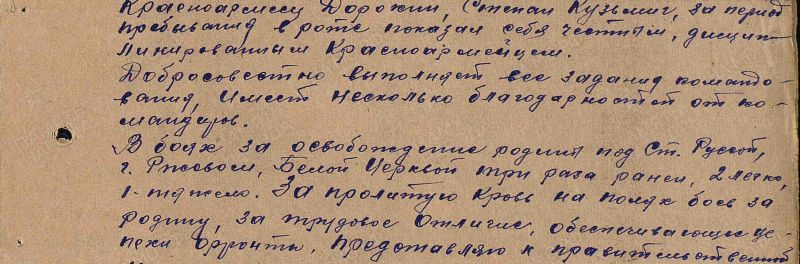 Красноармеец Дорохин, Степан Кузьмич, за период
пребывания в роте показал себя честным, дисцип-
линированным Красноармейцем.
Добросовестно выполняет все задания командо-
вания, имеет несколько благодарностей от ко-
мандиров.
В боях за освобождение родины под Ст. Руссой,
г. Ржевом, Белой Церквой три раза ранен, 2 легко,
1 - тяжело. За пролитую кровь на полях боев за
родину, за трудовое отличие, обеспечивающие ус-
пехи фронта, представляю к правительственной